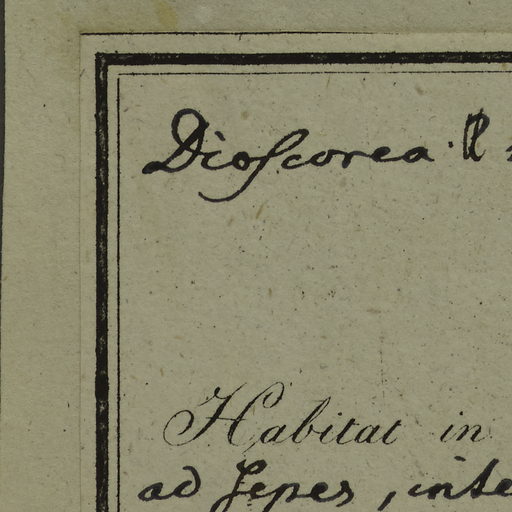 Dioscorea
Habitat in
ad sepes, inte